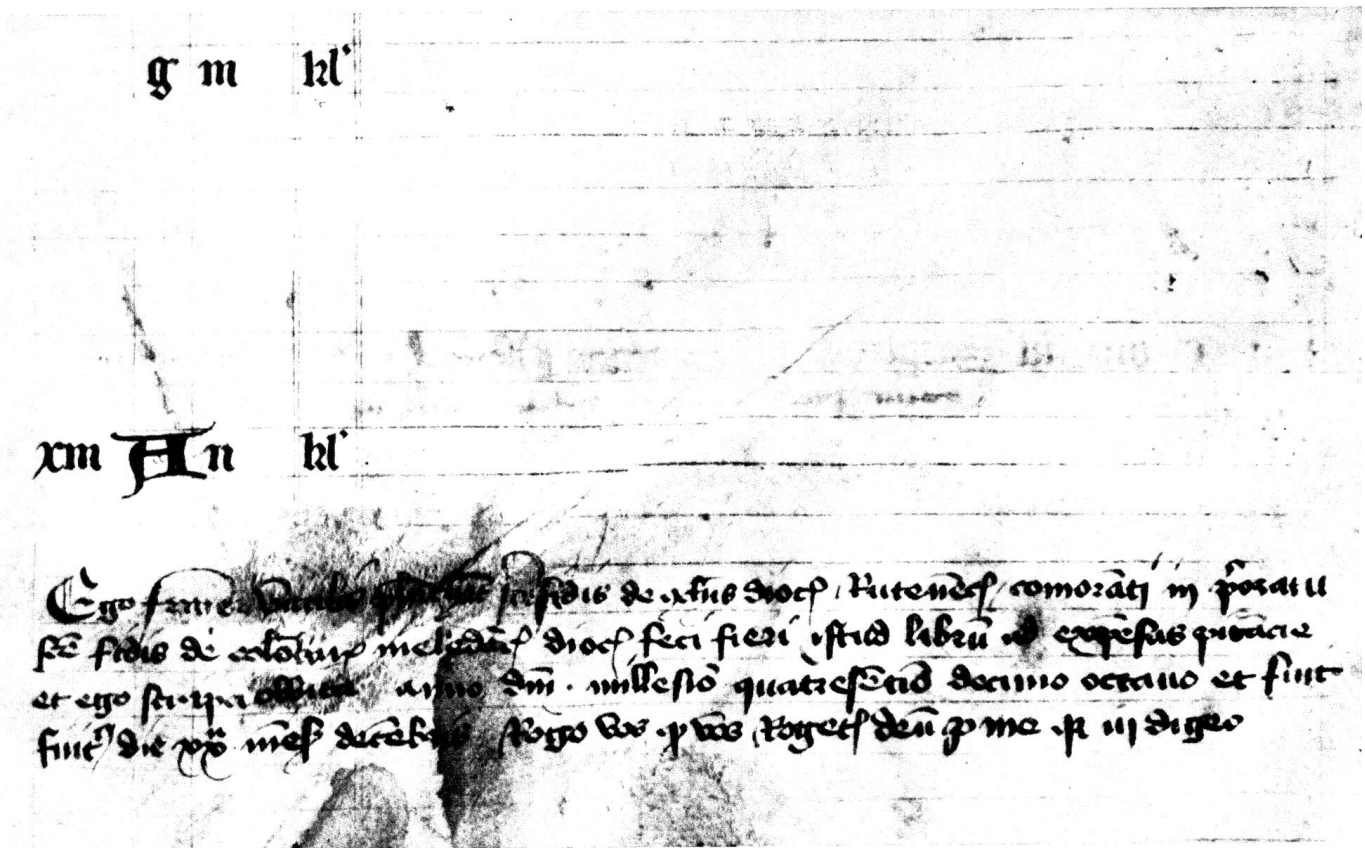 g m kl'
xm A n kl'
Ego frater sc̄e fidis de dioc̄ Rutenēc̄ comorāti in p̄oratu
sc̄e fidis de dioc̄ feci fieri istud librū ad expēsas pitācie
et ego scripsi anno dn̄i · millesiō quatresētiō decimo octauo et fuit
finit9 die xxa mēs decēbris Rogo vos ꝙ vos Rogetȝ deū ꝓ me ꝗ īdigeo